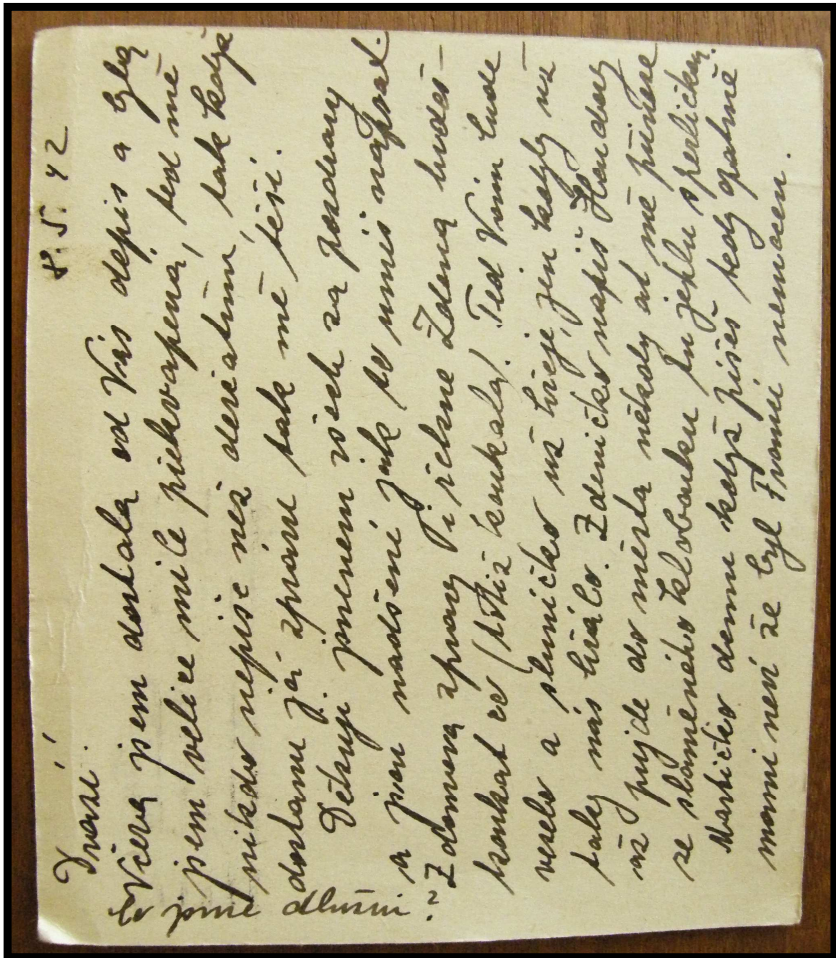 8. 5. 42
Drazí!
Včera jsem dostala od Vás dopis a byla
jsem velice mile překvapená, teď mě
nikdo nepíše než desátému, tak když
dostanu já zprávu tak mě těší.
Děkuji jménem všech za pozdravy
a jsou nadšení jak to umíš napsat.
Z domova zprávy i řekne Zdena budeš-
koukat co (totiž koukala). Teď Vám bude
veselo a sluničko už hřeje, jen kdyby už
taky nás hřálo. Zdeničko napiš Honzovy
až pujde do města někdy ať mě přinese
ze slaměného klobouku tu jehlu s perličkou.
Mařičko domu když píšeš tedy opatrně
mami neví že byl Franci nemocen.
Co jsme dlužni?